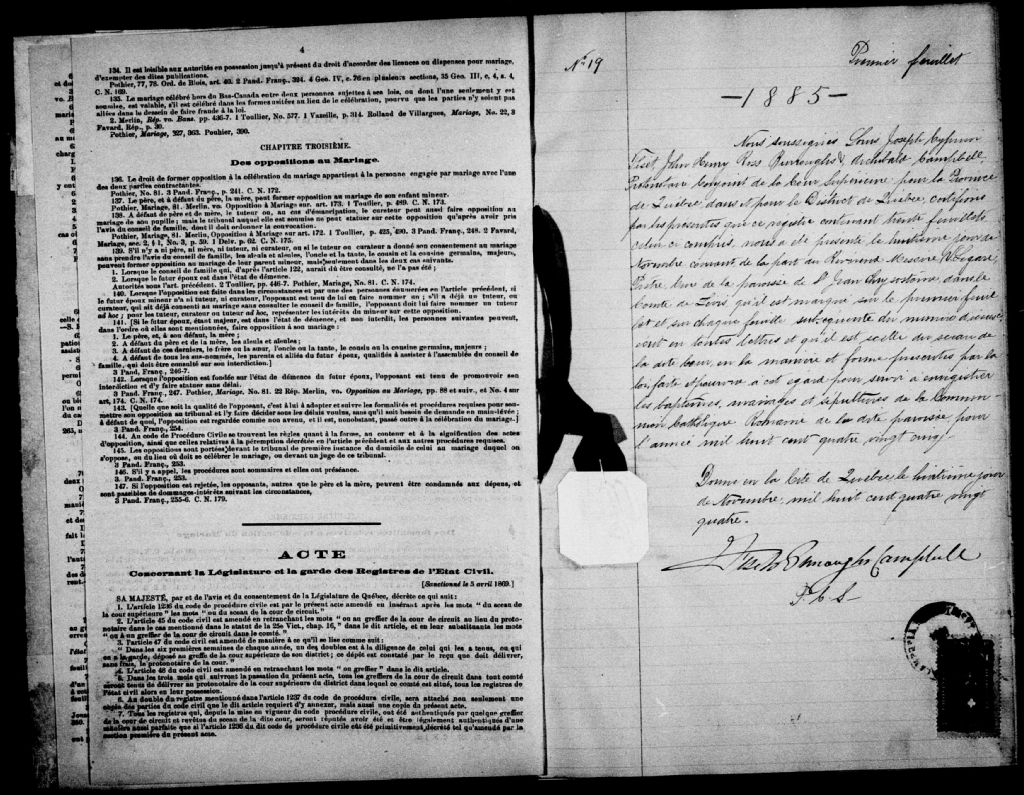 4
134. Il est loisible aux autorités en possession jusqu'à présent du droit d'accorder des licences ou dispenses pour mariage,
d'exempter des dites publications.
Pothier, 77, 78. Ord. de Blois, art. 40. 2 Pand. Franç., 324. 4 Geo. IV, c. 76 en plusieurs sections, 35 Geo. III, c, 4, s. 4,
C. N. 169.
135. Le mariage célébré hors du Bas-Canada entre deux personnes sujettes à ses lois, ou dont l'une seulement y est
soumise, est valable, s'il est célébré dans les formes usitées au lieu de la célébration, pourvu que les parties n'y soient pas
allées dans le dessein de faire fraude à la loi.
2. Merlin, Rép. vo. Bans. pp. 436-7. 1 Toullier, No. 577. 1 Vazeille, p. 314. Rolland de Villargues, Mariage, No. 22, 3
Favard, Rép., p. 30.
Pothier, Mariage, 327, 363. Pouhier, 390.
CHAPITRE TROISIÈME.
Des oppositions au Mariage.
136. Le droit de former opposition à la célébration du mariage appartient à la personne engagée par mariage avec l'une
des deux parties contractantes.
Pothier, No. 81. 3 Pand. Franç., p. 241. C. N. 172.
137. Le père, et à défaut du père, la mère, peut former opposition au mariage de son enfant mineur.
Pothier, Mariage, 81. Merlin, vo. Opposition à Mariage, sur art. 173. 1 Toullier, p. 489. C. N. 173.
138. A défaut de père et de mère, le tuteur ou, au cas d'émancipation, le curateur peut aussi faire opposition au
mariage de son pupille; mais le tribunal auquel elle est soumise ne peut statuer sur cette opposition qu'après avoir pris
l'avis du conseil de famille, dont il doit ordonner la convocation.
Pothier, Mariage, 81. Merlin, Opposition à Mariage sur art. 172. 1 Toullier, p. 425, 490. 3 Pand. Franç., 248. 2 Favard,
Mariage, sec. 2, § 1, No. 3, p. 59. 1 Delv. p. 62. C. N. 175.
139. S'il n'y a ni père, ni mère, ni tuteur, ni curateur, ou si le tuteur ou curateur a donné son consentement au mariage
sans prendre l'avis du conseil de famille, les aïeuls et aïeules, l'oncle et la tante, le cousin et la cousine germains, majeurs,
peuvent former opposition au mariage de leur parent mineur, mais seulement dans les deux cas suivants.
1. Lorsque le conseil de famille qui, d'après l'article 122, aurait dû être consulté, ne l'a pas été;
2. Lorsque le futur époux est dans l'état de démence.
Autorités sous l'art. précédent. 2 Toullier, pp. 446-7. Pothier, Mariage, No. 81. C. N. 174.
140. Lorsque l'opposition est faite dans les circonstances et par une des personnes énumérées en l'article précédent, si
le futur époux mineur n'a ni tuteur, ni curateur, l'opposant est tenu de lui en faire nommer un; s'il a déjà un tuteur, ou
curateur, qui ait déjà consenti au mariage sans consulter le conseil de famille, l'opposant doit lui faire nommer un tuteur
ad hoc; pour les tuteur, curateur ou tuteur ad hoc, représenter les intérêts du mineur sur cette opposition.
141. [Si le futur époux, étant majeur, est dans l'état de démence, et non interdit, les personnes suivantes peuvent,
dans l'ordre où elles sont mentionnées, faire opposition à son mariage:
1. Le père, et, à son défaut, la mère;
2. A défaut du père et de la mère, les aïeuls et aïeules;
3. A défaut de ces derniers, le frère ou la sœur, l'oncle ou la tante, le cousin ou la cousine germains, majeurs;
4. A défaut de tous les sus-nommés, les parents et alliés du futur époux, qualifiés à assister à l'assemblée du conseil de
famille, qui doit être consulté sur son interdiction.]
3 Pand. Franç., 246-7.
142. Lorsque l'opposition est fondée sur l'état de démence du futur époux, l'opposant est tenu de promouvoir son
interdiction et d'y faire statuer sans délai.
3 Pand. Franç., 247. Pothier, Mariage, No. 81. 22 Rép. Merlin, vo. Opposition au Mariage, pp. 88 et suiv., et No. 4 sur
art, 174. C. N. 174.
143. [Quelle que soit la qualité de l'opposant, c'est à lui à adopter et suivre les formalités et procédures requises pour sou-
mettre son opposition au tribunal et l'y faire décider sous les délais voulus, sans qu'il soit besoin de demande en main-levée;
à défaut de quoi, l'opposition est regardée comme non avenue, et il est, nonobstant, passé outre à la célébration du mariage.]
3 Pand. Franç., 254.
144. Au code de Procédure Civile se trouvent les règles quant à la forme, au contenu et à la signification des actes
d'opposition, ainsi que celles relatives à la péremption décrétée en l'article précédent et aux autres procédures requises.
145. Les oppositions sont portées devant le tribunal de première instance du domicile de celui au mariage duquel on
s'oppose, ou du lieu où doit se célébrer le mariage, ou devant un juge de ce tribunal.
3 Pand. Franç., 253.
146. S'il y a appel, les procédures sont sommaires et elles ont préséance.
3 Pand. Franç., 253.
147. Si l'opposition est rejetée, les opposants, autres que le père et la mère, peuvent être condamnés aux dépens, et
sont passibles de dommages-intérêts suivant les circonstances,
3 Pand. Franç., 255-6. C. N. 179.
ACTE
Concernant la Législature et la garde des Registres de l'Etat Civil.
[Sanctionné le 5 avril 1869.]
SA MAJESTÉ, par et de l'avis et du consentement de la Législature de Québec, décrète ce qui suit:
1. L'article 1236 du code de procédure civile est par le présent acte amendé en insérant après les mots "du sceau de
la cour supérieure" les mots "ou du sceau de la cour de circuit."
2. L'article 45 du code civil est amendé en retranchant les mots "ou au greffier de la cour de circuit au lieu du proto-
notaire dans le cas mentionné dans le statut de la 25e Vict., chap. 16," dans le dit article, et en leur substituant les mots
"ou à un greffier de la cour de circuit dans le comté."
3. l'article 47 du code civil est amendé de manière à ce qu'il se lise comme suit:
"Dans les six premières semaines de chaque année, un des doubles est à la diligence de celui qui les a tenus, ou qui
en a la garde, déposé au greffe de la cour supérieure de son district; ce dépôt est constaté par le reçu que doit délivrer,
sans frais, le protonotaire de la cour."
4. L'article 48 du code civil est amendé en retranchant les mots "ou greffier" dans le dit article.
5. Dans les trois mois qui suivront la passation du présent acte, tous les greffiers de la cour de circuit dans tout comté
seront tenus de délivrer au protonotaire de la cour supérieure du district dans lequel ce comté est situé, tous les registres de
l'état civil alors en leur possession.
6. Au double du registre mentionné dans l'article 1237 du code de procédure civile, sera attaché non seulement une
copie des parties du code civil que le dit article requiert d'y annexer, mais aussi une copie du présent acte.
7. Tous les registres qui, depuis la mise en vigueur du code procédure civile, ont été authentiqués par quelque greffier
de la cour de circuit et revêtus du sceau de la dite cour, seront réputés avoir été et être légalement authentiqués d'une
manière aussi parfaite que si l'article 1236 du dit code de procédure civile eût été primitivement décrété tel qu'amendé par la
section première du présent acte.
No 19
Premier feuillet
—1885—
Nous soussignés Louis Joseph Cyprien
Fiset, John Henry Ross Burroughs & Archibald Campbell,
Protonotaire Conjoint de la Cour Supérieure pour la Province
de Québec dans et pour le District de Québec, certifions
par les présentes que ce registre contenant trente feuillets
celui ci compris, nous a été présenté le huitième jour de
Novembre courant de la part du Révérend Messire
Prêtre, Curé de la paroisse de St Jean Chrysostôme dans le
Comté de Lévis qu'il est marqué sur le premier feuil
let et sur chaque feuille subséquente du numéro d'icelui
écrit en toutes lettres et qu'il est scellé du sceau de
la dite Cour en la manière et forme prescrites par la
loi faite et pourvue à cet égard pour servir à enregistrer
les baptêmes, mariages et sépultures de la Commu-
nion Catholique Romaine de la dite paroisse pour
l'année mil huit cent quatre vingt cinq.
Donné en la Cité de Québec le huitième jour
de Novembre mil huit cent quatre vingt
quatre.
Fiset Burroughs Campbell
P. C. S